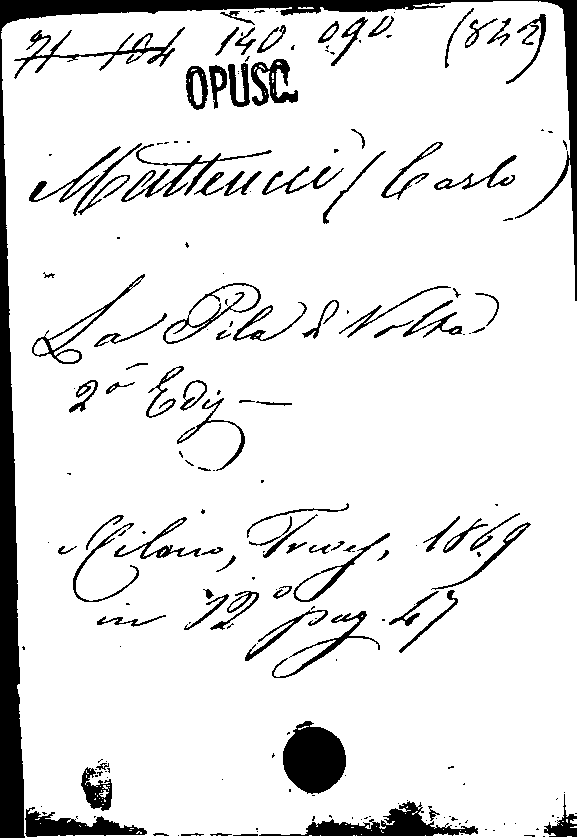 71-104 140.090. (822)
OPUSC.
Matteucci (Carlo)
La Pila di Volta
2ª Ediz—
Milano, Treves, 1869
in 12º pag. 47